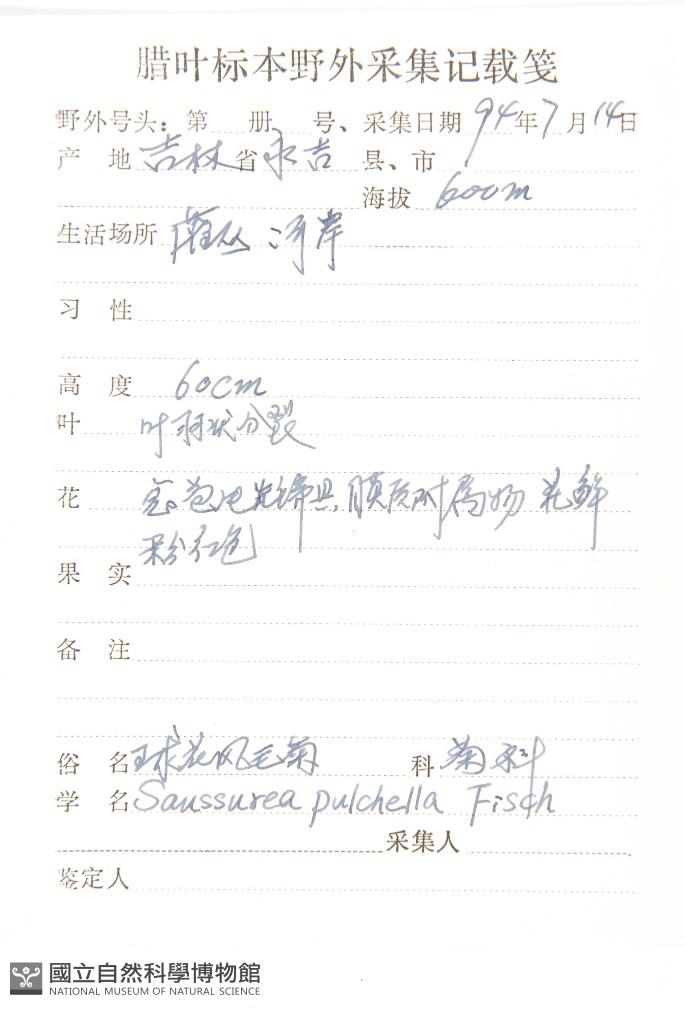 腊叶标本野外采集记载笺
野外号头：第 册 号、采集日期 94年7月14日
产 地 吉林省永吉 县、市
海拔 600m
生活场所 灌丛 河岸
习 性
高 度 60cm
叶 叶羽状分裂
花 总苞片先端具膜质附属物 花鲜
粉红色
果 实
备 注
俗 名 球花风毛菊 科 菊科
学 名 Saussurea pulchella Fisch
采集人
鉴定人
國立自然科學博物館
NATIONAL MUSEUM OF NATURAL SCIENCE